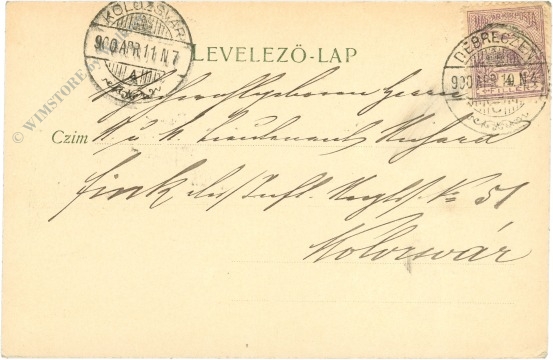 KOLOZSVÁR
900 APR. 11. N. 7
A
MAGYAR KIR. POSTA
DEBRECZEN
900 APR. 10. N. 4
LEVELEZŐ-LAP
© WIMSTORE
Hochwohlgeboren Herrn
Czim K. u. k. Lieutenant Richard
Fink des Inft. Regts. No 51
Kolozsvár